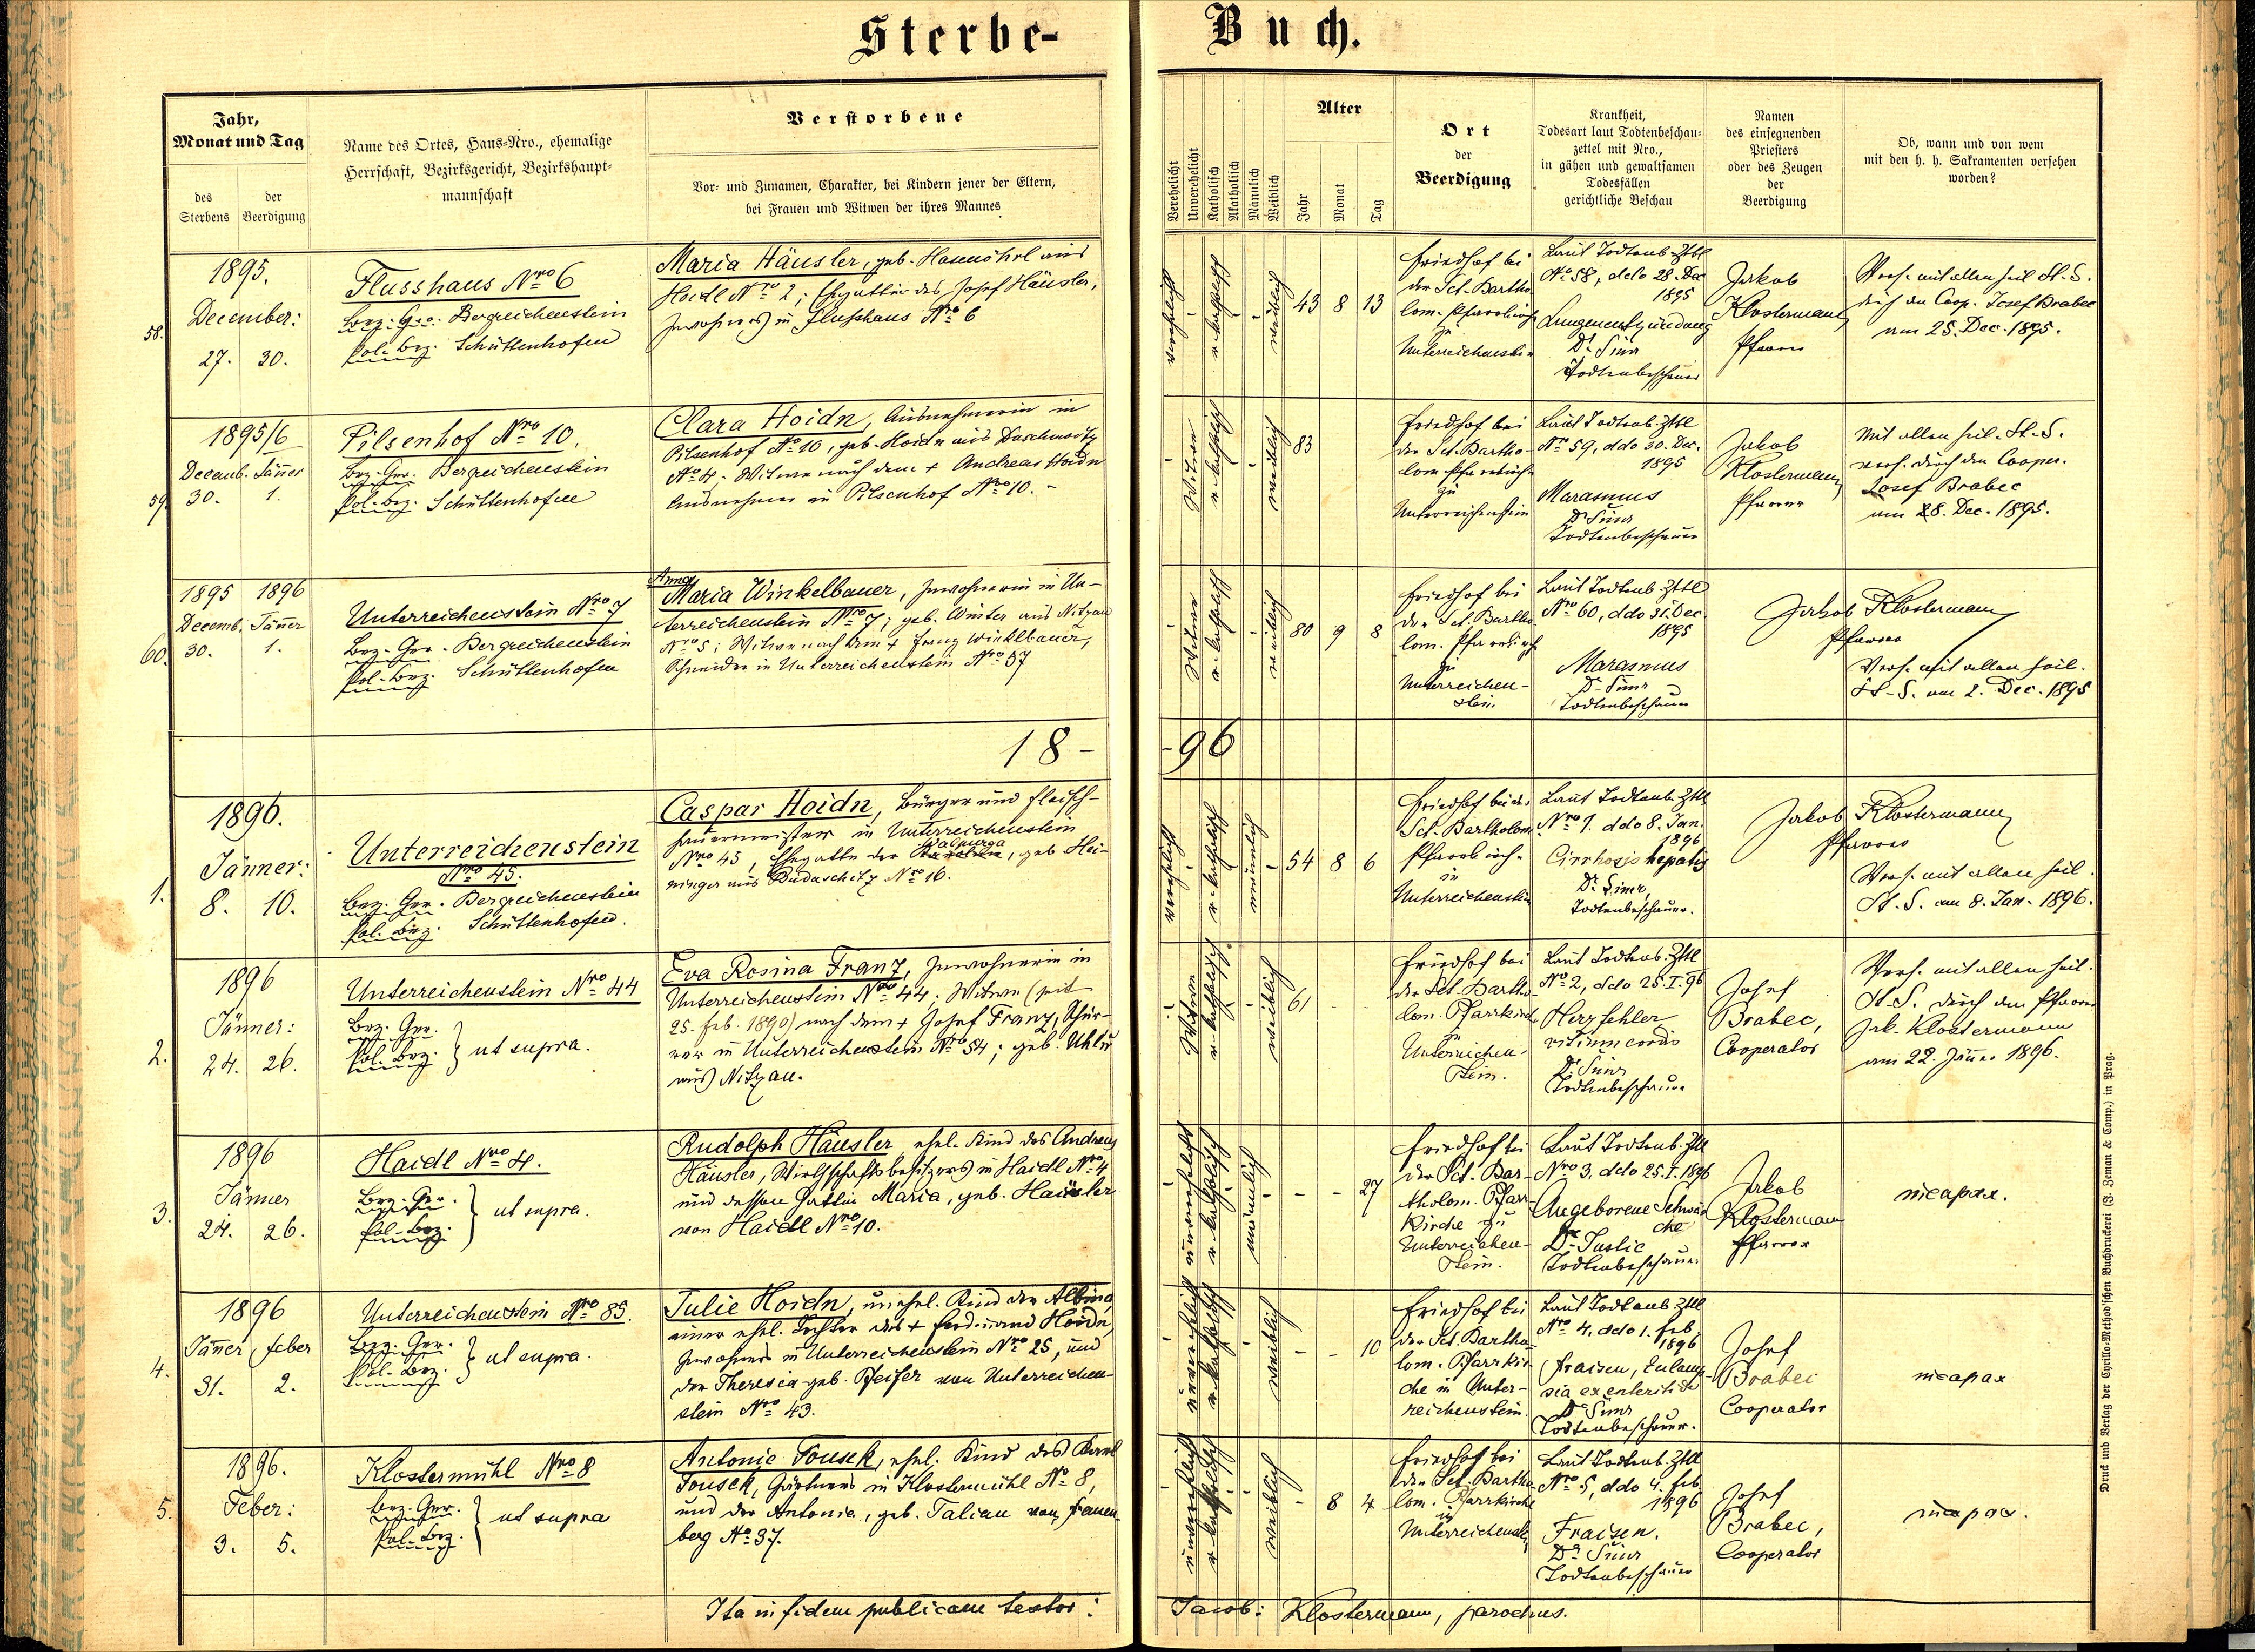 Sterbe-
Buch.
Jahr,
Monat und Tag
des
Sterbens
der
Beerdigung
Name des Ortes, Haus-Nro., ehemalige
Herrschaft, Bezirksgericht, Bezirkshaupt-
mannschaft
Verstorbene
Vor- und Zunamen, Charakter, bei Kindern jener der Eltern,
bei Frauen und Witwen der ihres Mannes
Verehelicht
Unverehelicht
Katholisch
Akatholisch
Männlich
Weiblich
Alter
Jahr
Monat
Tag
Ort
der
Beerdigung
Krankheit,
Todesart laut Todtenbeschau-
zettel mit Nro.,
in gähen und gewaltsamen
Todesfällen
gerichtliche Beschau
Namen
des einsegnenden
Priesters
oder des Zeugen
der
Beerdigung
Ob, wann und von wem
mit den h. h. Sakramenten versehen
worden?
58.
1895.
December:
27. 30.
Flusshaus Nro 6
Bez. Ger. Bergreichenstein
Pol. Bez. Schüttenhofen
Maria Häusler, geb. Hasenöhrl aus
Haidl Nro 2; Ehegattin des Josef Häusler,
Inwohners in Flusshaus Nro 6
verehelicht
r. katholisch
weiblich
43 8 13
Friedhof bei
der Sct. Bartho-
lom. Pfarrkirche
zu
Unterreichenstein
Laut Todtenb. Zttl
No 58, ddo 28. Dec
1895
Lungenentzündung
Dr
Todtenbeschauer
Jakob
Klostermann
Pfarrer
Vers. mit allen heil. St. S.
durch den Coop. Josef Brabec
am 25. Dec. 1895.
59.
1895/6
Decemb. Jänner
30. 1.
Pilsenhof Nro 10.
Bez. Ger. Bergreichenstein
Pol. Bez. Schüttenhofen
Clara Hoidn, Ausnehmerin in
Pilsenhof No 10, geb. Hoidn aus
No 4, Witwe nach dem + Andreas Hoidn
Ausnehmer in Pilsenhof Nro 10.-
Witwe
r. katholisch
weiblich
83
Friedhof bei
der Sct. Bartho-
lom. Pfarrkirche
zu
Unterreichenstein
Laut Todtenb. Zttl
Nro 59, ddo 30. Dec.
1895
Marasmus
Dr
Todtenbeschauer
Jakob
Klostermann
Pfarrer
Mit allen heil. St. S.
vers. durch den Cooper.
Josef Brabec
am 28. Dec. 1895.
60.
1895 1896
Decemb. Jänner
30. 1.
Unterreichenstein Nro 7
Bez. Ger. Bergreichenstein
Pol. Bez. Schüttenhofen
Anna
Maria Winkelbauer, Inwohnerin in Un-
terreichenstein Nro 7; geb. Winter aus Nitzau
Nro 5; Witwe nach dem + Franz Winklbauer,
Schneider in Unterreichenstein Nro 57
Witwe
r. katholisch
weiblich
80 9 8
Friedhof bei
der Sct. Bartho-
lom. Pfarrkirche
zu
Unterreichen-
stein.
Laut Todtenb. Zttl
Nro 60, ddo 31. Dec.
1895
Marasmus
Dr
Todtenbeschauer
Jakob Klostermann
Pfarrer
Vers. mit allen heil.
St. S. am 2. Dec. 1895
18-
-96
1.
1896.
Jänner:
8. 10.
Unterreichenstein
Nro 45.
Bez. Ger. Bergreichenstein
Pol. Bez. Schüttenhofen.
Caspar Hoidn, Bürger und Fleisch-
hauermeister in Unterreichenstein
Walpurga
Nro 45, Ehegatte der , geb. Hei-
ninger aus Budaschitz Nro 16.
verehelicht
r. katholisch
männlich
54 8 6
Friedhof bei der
Sct. Bartholom.
Pfarrkirche
in
Unterreichenstein
Laut Todtenb. Zttl
Nro 1. ddo 8. Jan.
1896
Cirrhosis hepatis
Dr
Todtenbeschauer.
Jakob Klostermann
Pfarrer
Vers. mit allen heil.
St. S. am 8. Jan. 1896.
2.
1896
Jänner:
24. 26.
Unterreichenstein Nro 44
Bez. Ger.
Pol. Bez. } ut supra.
Eva Rosina Franz, Inwohnerin in
Unterreichenstein Nro 44; Witwe (seit
25. Feb. 1890) nach dem + Josef Franz,
in Unterreichenstein No 54; geb. Uhlir
aus Nitzau.
Witwe
r. katholisch
weiblich
61
Friedhof bei
der Sct. Bartho-
lom. Pfarrkirche
zu
Unterreichen-
stein.
Laut Todtenb. Zttl
No 2, ddo 25. I. 96
Herzfehler
vitium cordis
Dr
Todtenbeschauer
Josef
Brabec,
Cooperator
Vers. mit allen heil.
St. S. durch den Pfarrer
Jak. Klostermann
am 22. Jänner 1896.
3.
1896
Jänner
24. 26.
Haidl Nro 4.
Bez. Ger.
Pol. Bez. } ut supra.
Rudolph Häusler ehel. Kind des Andreas
Häusler, Wirthschaftsbesitzers in Haidl Nro 4
und dessen Gattin Maria, geb. Häusler
von Haidl Nro 10.
unverehelicht
r. katholisch
männlich
- - 27
Friedhof bei
der Sct. Bar-
tholom. Pfarr-
kirche zu
Unterreichen-
stein.
Laut Todtenb. Zttl
Nro 3, ddo 25. I. 1896
Angeborene Schwä-
che
Dr
Todtenbeschauer
Jakob
Klostermann
Pfarrer
incapax.
4.
1896
Jänner Feber
31. 2.
Unterreichenstein Nro 85.
Bez. Ger.
Pol. Bez. } ut supra.
Julie Hoidn, unehel. Kind der Albina,
einer ehel. Tochter des + Ferdinand Hoidn,
Inwohners in Unterreichenstein Nro 25, und
der Theresia geb. Pfeifer von Unterreichen-
stein Nro 43.
unverehelicht
r. katholisch
weiblich
- - 10
Friedhof bei
der Sct. Bartho-
lom. Pfarrkir-
che in Unter-
reichenstein.
Laut Todtenb. Zttl
Nro 4, ddo 1. Feb.
1896
Fraisen, Eclamp-
sia ex enteritide
Dr
Todtenbeschauer.
Josef
Brabec
Cooperator
incapax
5.
1896.
Feber:
3. 5.
Klostermühl Nro 8
Bez. Ger.
Pol. Bez. } ut supra
Antonie Tousek, ehel. Kind des Karl
Tousek, Gärtners in Klostermühl No 8,
und der Antonia, geb. Talian von Frauen-
berg No 37.
unverehelicht
r. katholisch
weiblich
- 8 4
Friedhof bei
der Sct. Bartho-
lom. Pfarrkirche
in
Unterreichenstein
Laut Todtenb. Zttl
Nro 5, ddo 4. Feb.
1896
Fraisen.
Dr
Todtenbeschauer
Josef
Brabec,
Cooperator
incapax.
Ita in fidem publicam testor:
Jacob: Klostermann, parochus.
Druck und Verlag der Cyrillo-Method'schen Buchdruckerei (J. Zeman & Comp.) in Prag.